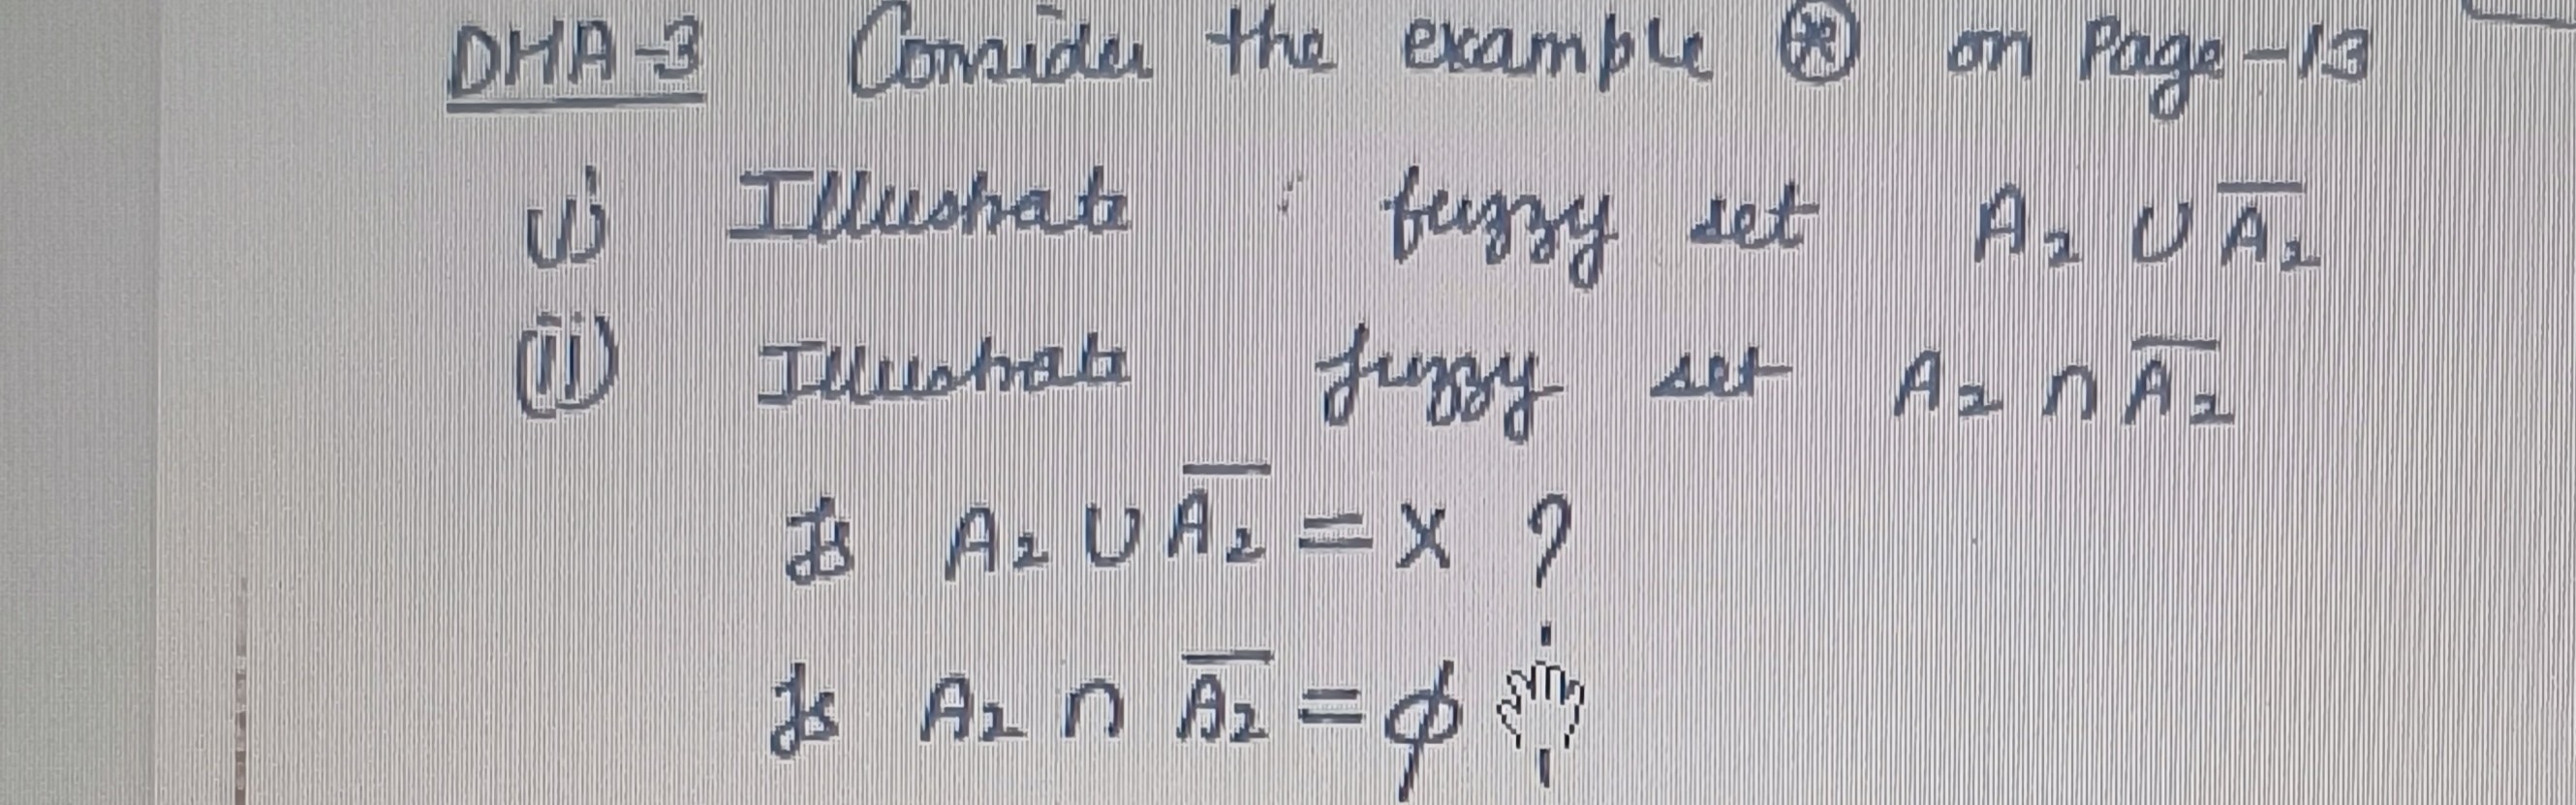 DHA-3 Consider the example ⊛ on Page-13
(i) Illustrate fuzzy set A₂ ∪ A̅₂
(ii) Illustrate fuzzy set A₂ ∩ A̅₂
Is A₂ ∪ A̅₂ = X ?
Is A₂ ∩ A̅₂ = ϕ